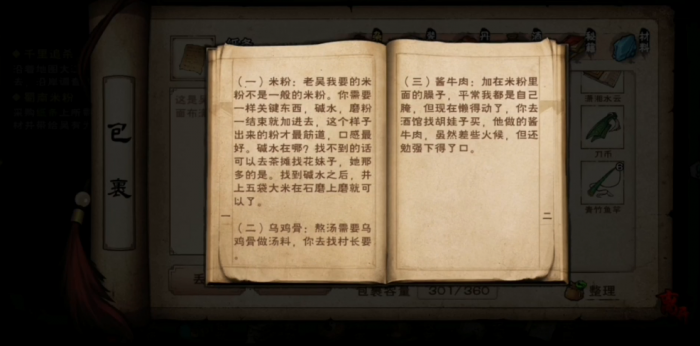 包裹
（一）米粉：老吴我要的米
粉不是一般的米粉。你需要
一样关键东西，碱水，磨粉
一结束就加进去，这个样子
出来的粉才最筋道，口感最
好。碱水在哪？找不到的话
可以去茶摊找花妹子，她那
多的是。找到碱水之后，井
上五袋大米在石磨上磨就可
以了。
（二）乌鸡骨：熬汤需要乌
鸡骨做汤料，你去找村长要
。
一
（三）酱牛肉：加在米粉里
面的臊子，平常我都是自己
腌，但现在懒得动了，你去
酒馆找胡娃子买，他做的酱
牛肉，虽然差些火候，但还
勉强下得了口。
二
包裹容量 301/380
整理